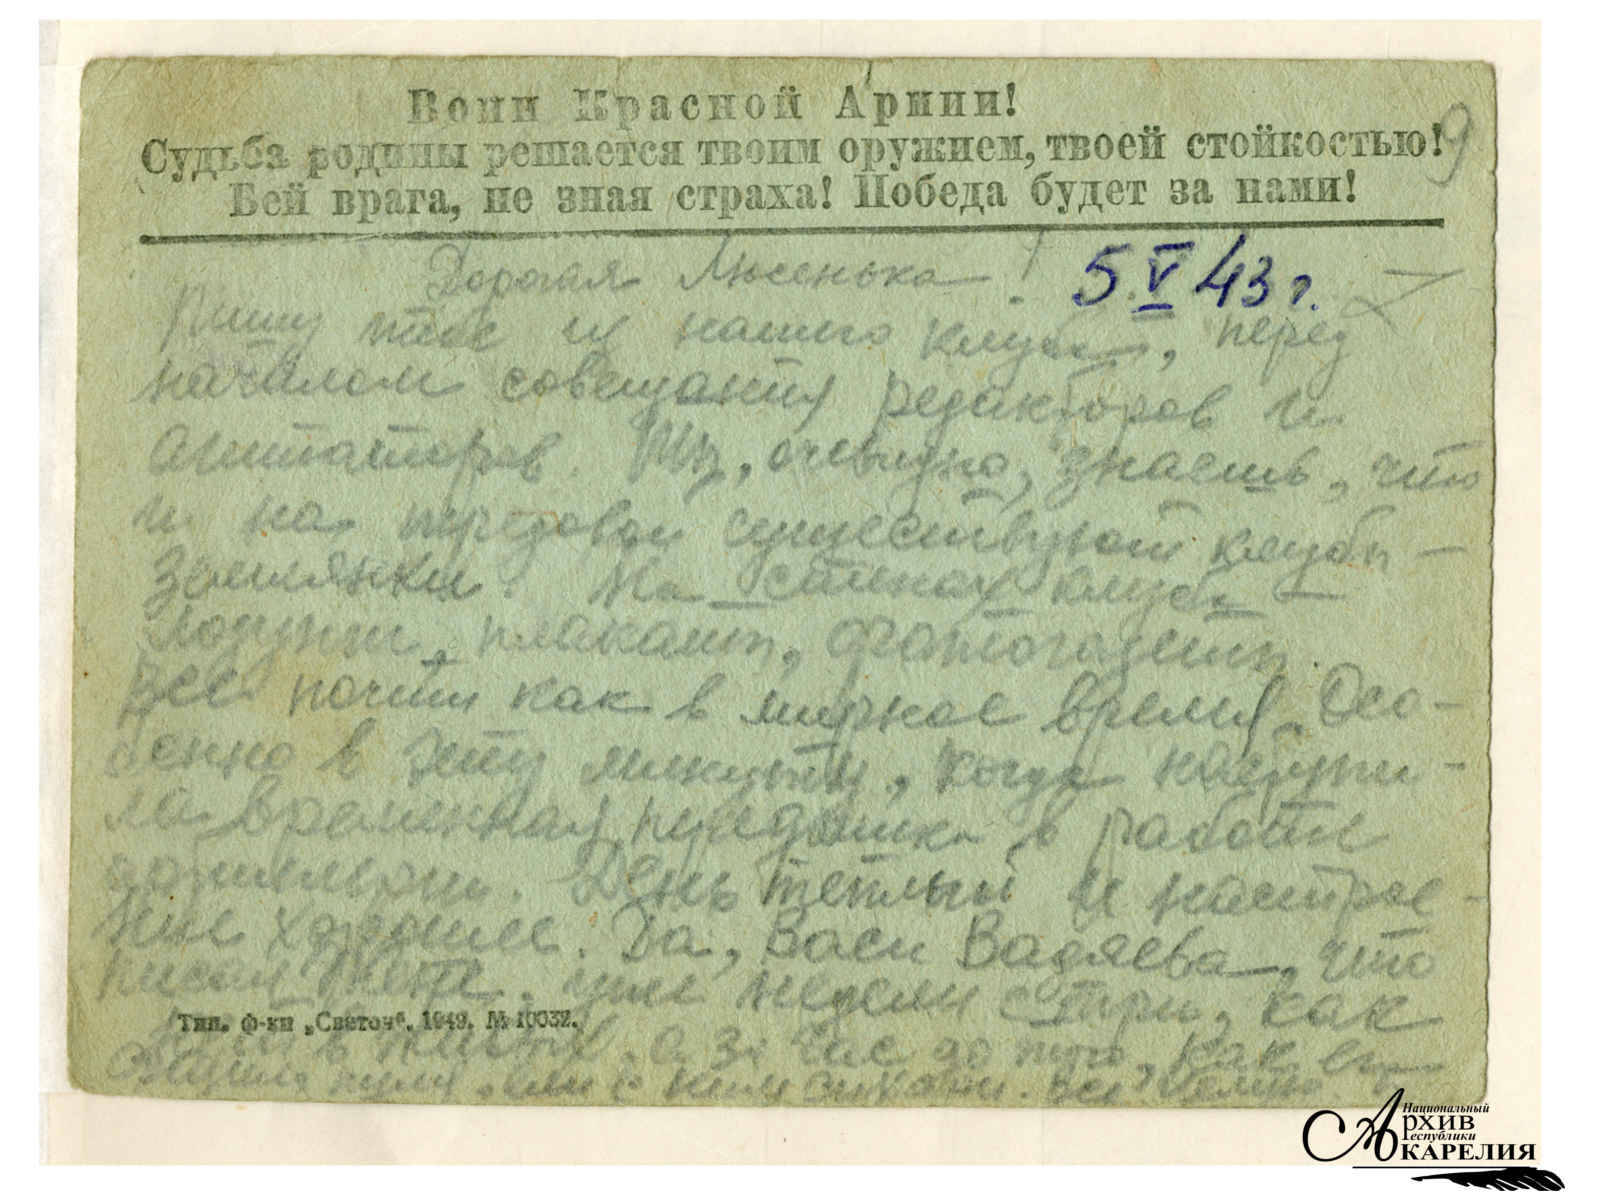 Воин Красной Армии!
Судьба родины решается твоим оружием, твоей стойкостью!
Бей врага, не зная страха! Победа будет за нами!
9
Дорогая Люсенька! 5.V 43 г.
Пишу тебе из нашего клуба, перед
началом совещания редакторов и
агитаторов. Ты, очевидно, знаешь, что
и на передовой существуют клубы –
землянки. На стенах клуба –
лозунги, плакаты, фотогазеты.
Все почти как в мирное время. Осо-
бенно в эту минуту, когда наступи-
ла временная передышка в работе
артиллерии. День теплый и настрое-
ние хорошее. Да, Васи Вадяева, что
писал тебе, уже недели с три, как
нет в живых, а за час до того, как его
пуля, мы с ним
Тип. ф-ки „Светоч“. 1942. № 10032.
Национальный
Архив
Республики
Карелия